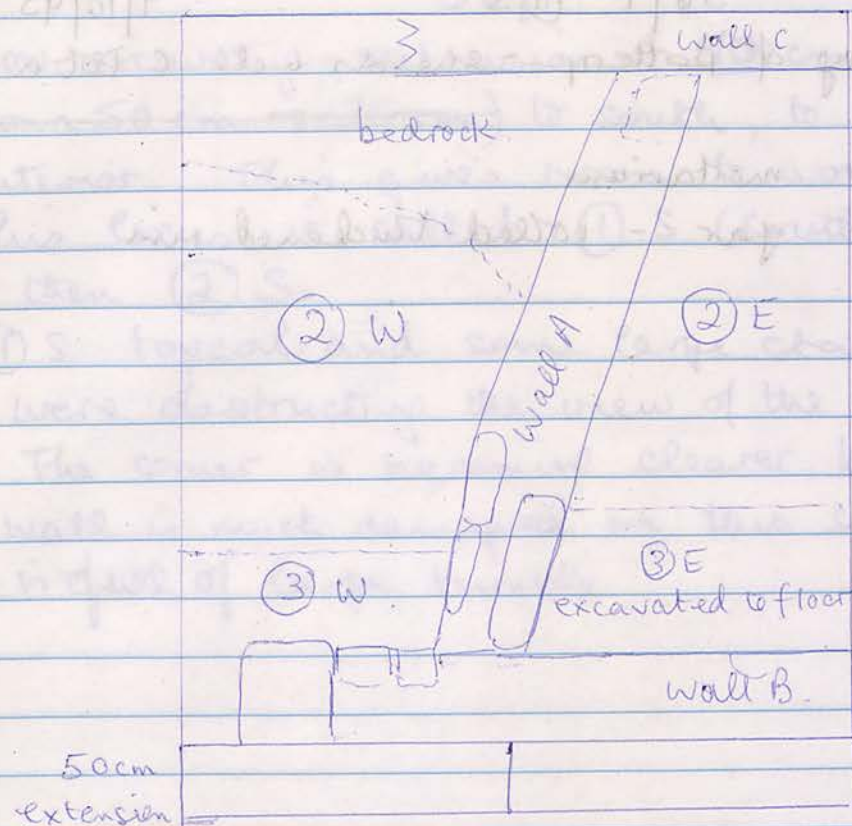 wall C
bedrock
② W
② E
wall A
③ W
③ E
excavated to floor
wall B.
50cm
extension